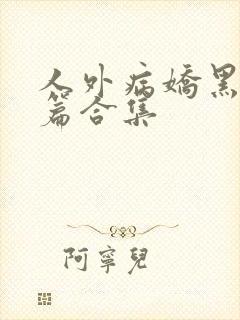 人外病嬌黑
篇合集
阿寧兒